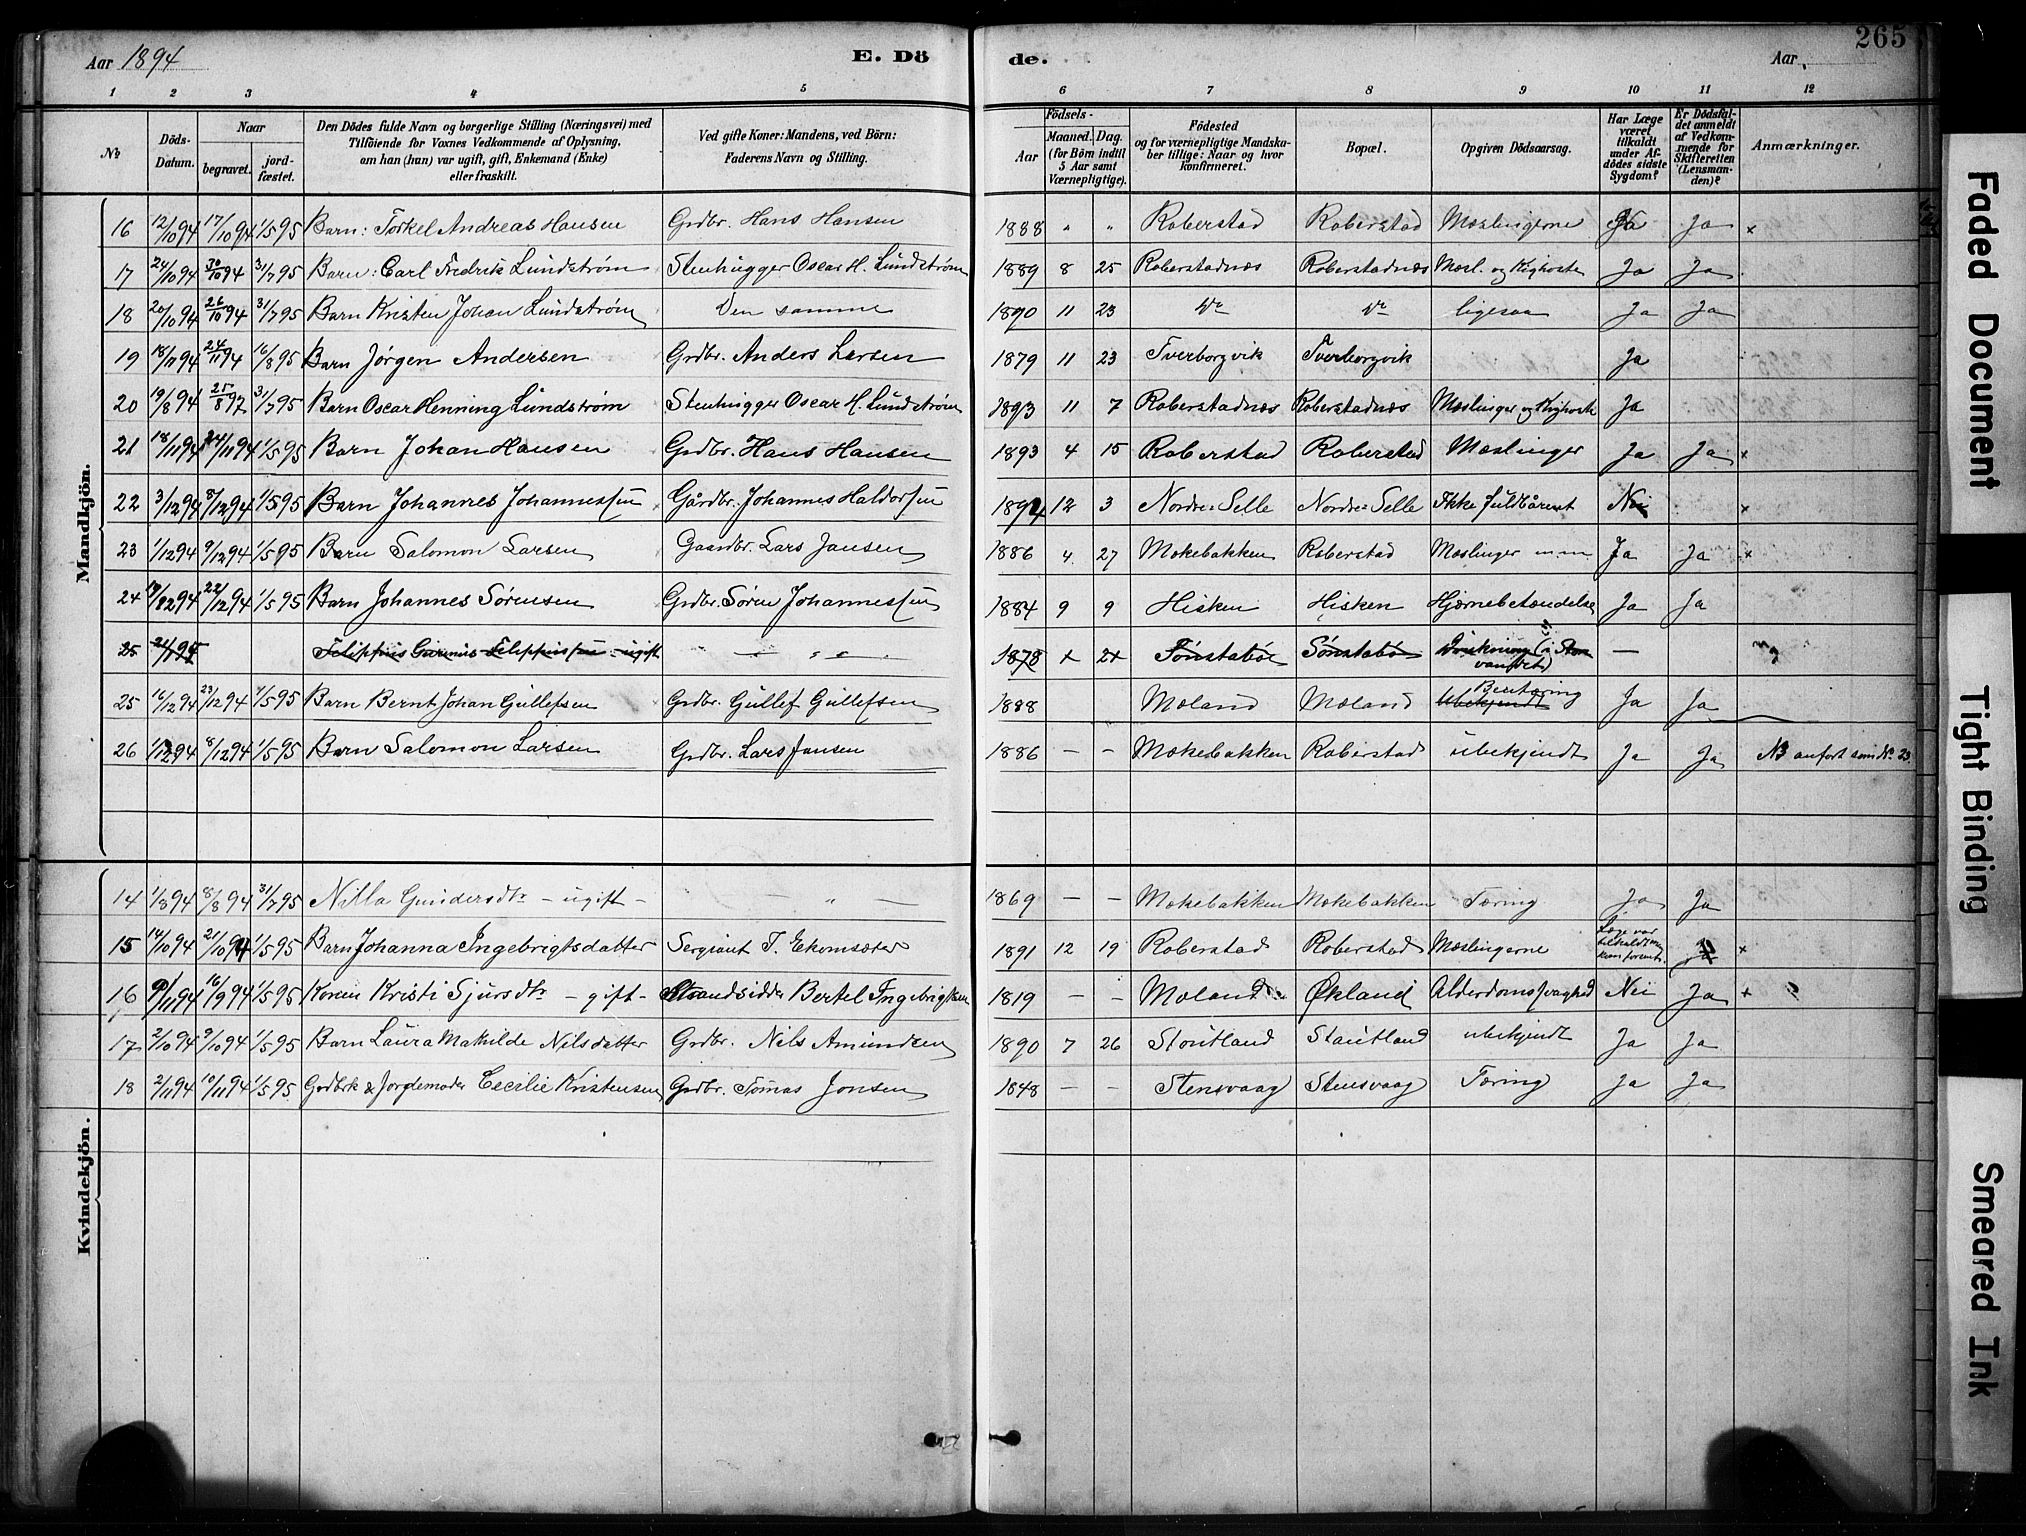 265
Aar 1894 E. Dö de. Aar
1 2 3 4 5 6 7 8 9 10 11 12
No Döds-Datum. Naar begravet. jordfæstet. Den Dödes fulde Navn og borgerlige Stilling (Næringsvei) med Tilföiende for Voxnes Vedkommende af Oplysning, om han (hun) var ugift, gift, Enkemand (Enke) eller fraskilt. Ved gifte Koner: Mandens, ved Börn: Faderens Navn og Stilling. Födsels- Aar Maaned. Dag. (for Börn indtil 5 Aar samt Værnepligtige). Födested og for værnepligtige Mandskaber tillige: Naar og hvor konfirmeret. Bopæl. Opgiven Dödsaarsag. Har Læge været tilkaldt under Afdödes sidste Sygdom? Er Dödsfaldet anmeldt af Vedkommende for Skifteretten (Lensmanden)? Anmærkninger.
Mandkjön.
16 12/10 94 17/10 94 1/5 95 Barn: Torkel Andreas Hansen Grdbr. Hans Hansen 1888 " " Roberstad Roberstad Mæslingerne Ja Ja x
17 24/10 94 30/10 94 31/7 95 Barn: Carl Fredrik Lundstrøm Stenhugger Oscar H. Lundstrøm 1889 8 25 Roberstadnæs Roberstadnæs Mæsl. og Kighoste Ja Ja
18 20/10 94 26/10 94 31/7 95 Barn Kristen Johan Lundstrøm Den samme 1890 11 23 do do ligesaa Ja Ja
19 18/11 94 24/11 94 16/8 95 Barn Jörgen Andersen Grdbr. Anders Larsen 1879 11 23 Tverborgvik Tverborgvik Ja
20 19/8 94 25/8 97 31/7 95 Barn Oscar Henning Lundstrøm Stenhugger Oscar H. Lundstrøm 1893 11 7 Roberstadnæs Roberstadnæs Mæslinger og Kighoste Ja
21 18/11 94 24/11 94 1/5 95 Barn Johan Hansen Grdbr. Hans Hansen 1893 4 15 Roberstad Roberstad Mæslinger Ja Ja x
22 3/12 94 8/12 94 1/5 95 Barn Johannes Johannessen Gårdbr. Johannes Haldorsen 1894 12 3 Nordre-Selle Nordre-Selle Ikke fuldbårent Nei x
23 1/12 94 9/12 94 1/5 95 Barn Salomon Larsen Gaardbr. Lars Jansen 1886 4 27 Mækebakken Roberstad Mæslinger m m Ja Ja x
24 22/12 94 1/5 95 Barn Johannes Sörensen Grdbr. Sören Johannessen 1884 9 9 Hisken Hisken Hjærnebetændelse Ja Ja
25 Filippus Filippussen - ugift " " " 1878 Sönstabø Sönstabø Drukning (i vandet) —
25 16/12 94 23/12 94 1/5 95 Barn Bernt Johan Gullefsen Grdbr. Gullef Gullefsen 1888 Mæland Mæland Ubekjendt Bentæring Ja Ja
26 1/12 94 8/12 94 1/5 95 Barn Salomon Larsen Grdbr. Lars Jansen 1886 — — Mækebakken Roberstad ubekjendt Ja Ja NB anført som No 23.
Kvindekjön.
14 1/8 94 8/8 94 31/7 95 Nilla Gundersdtr - ugift - — " — 1869 — — Mækebakken Mækebakken Tæring Ja Ja
15 14/10 94 21/10 94 1/5 95 Barn Johanna Ingebrigtsdatter Sergiant T. Ekornsæter 1891 12 19 Roberstad Roberstad Mæslingerne Læge var tilkaldt men kom forsent. Ja x
16 9/11 94 16/9 94 1/5 95 Konen Kristi Sjursdtr - gift - Strandsidder Bertel Ingebrigtsen 1819 — — Mæland Økland Alderdomssvaghed Nei Ja x
17 2/10 94 9/10 94 1/5 95 Barn Laura Mathilde Nilsdatter Grdbr. Nils Amundsen 1890 7 26 Stoutland Stautland ubekjendt Ja Ja
18 2/11 94 10/11 94 1/5 95 Grdbrk & Jordemoder Cecilie Kristensen Grdbr. Tomas Jonsen 1848 — — Stensvaag Stensvaag Tæring Ja Ja
Faded Document
Tight Binding
Smeared Ink